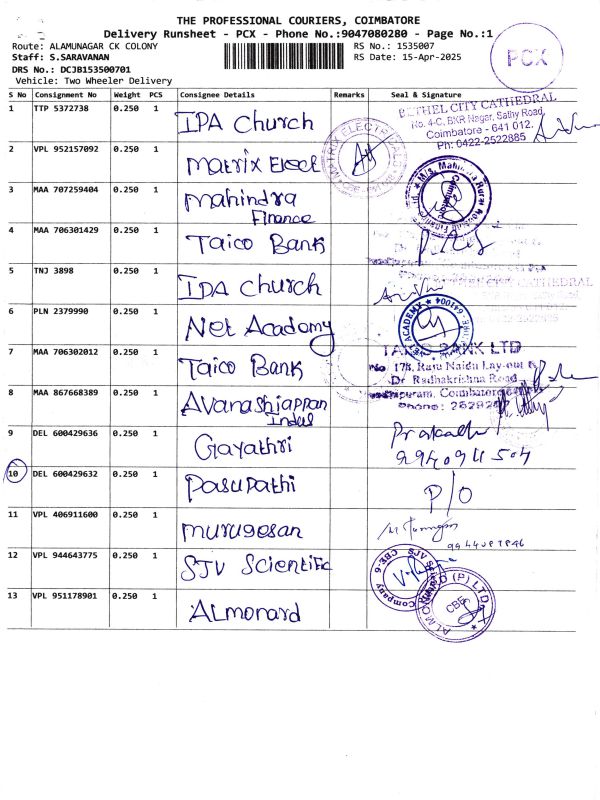 THE PROFESSIONAL COURIERS, COIMBATORE
Delivery Runsheet - PCX - Phone No.:9047080280 - Page No.:1
Route: ALAMUNAGAR CK COLONY
RS No.: 1535007
Staff: S.SARAVANAN
RS Date: 15-Apr-2025
DRS No.: DCJB153500701
Vehicle: Two Wheeler Delivery
PCX
S No Consignment No Weight PCS Consignee Details Remarks Seal & Signature
1 TTP 5372738 0.250 1 IPA Church
BETHEL CITY CATHEDRAL
No. 4-C, BKR Nagar, Sathy Road,
Coimbatore - 641 012.
Ph: 0422-2522885
2 VPL 952157092 0.250 1 Matrix Elect
3 MAA 707259404 0.250 1 Mahindra
Finance
4 MAA 706301429 0.250 1 Taico Bank
5 TNJ 3898 0.250 1 IPA Church
CATHEDRAL
6 PLN 2379990 0.250 1 Net Academy
ACADEMY
7 MAA 706302012 0.250 1 Taico Bank
BANK LTD
No 178, Raja Naidu Lay-out
Dr Radhakrishna Road
Coimbatore
Phone:
8 MAA 867668389 0.250 1 Avanashiappan
Indus
9 DEL 600429636 0.250 1 Gayathri
10 DEL 600429632 0.250 1 Pasupathi
P/O
11 VPL 406911600 0.250 1 murugesan
12 VPL 944643775 0.250 1 SJV Scientific
SJV
Company
CBE-6
13 VPL 951178901 0.250 1 Almonard
(P) LTD
CBE